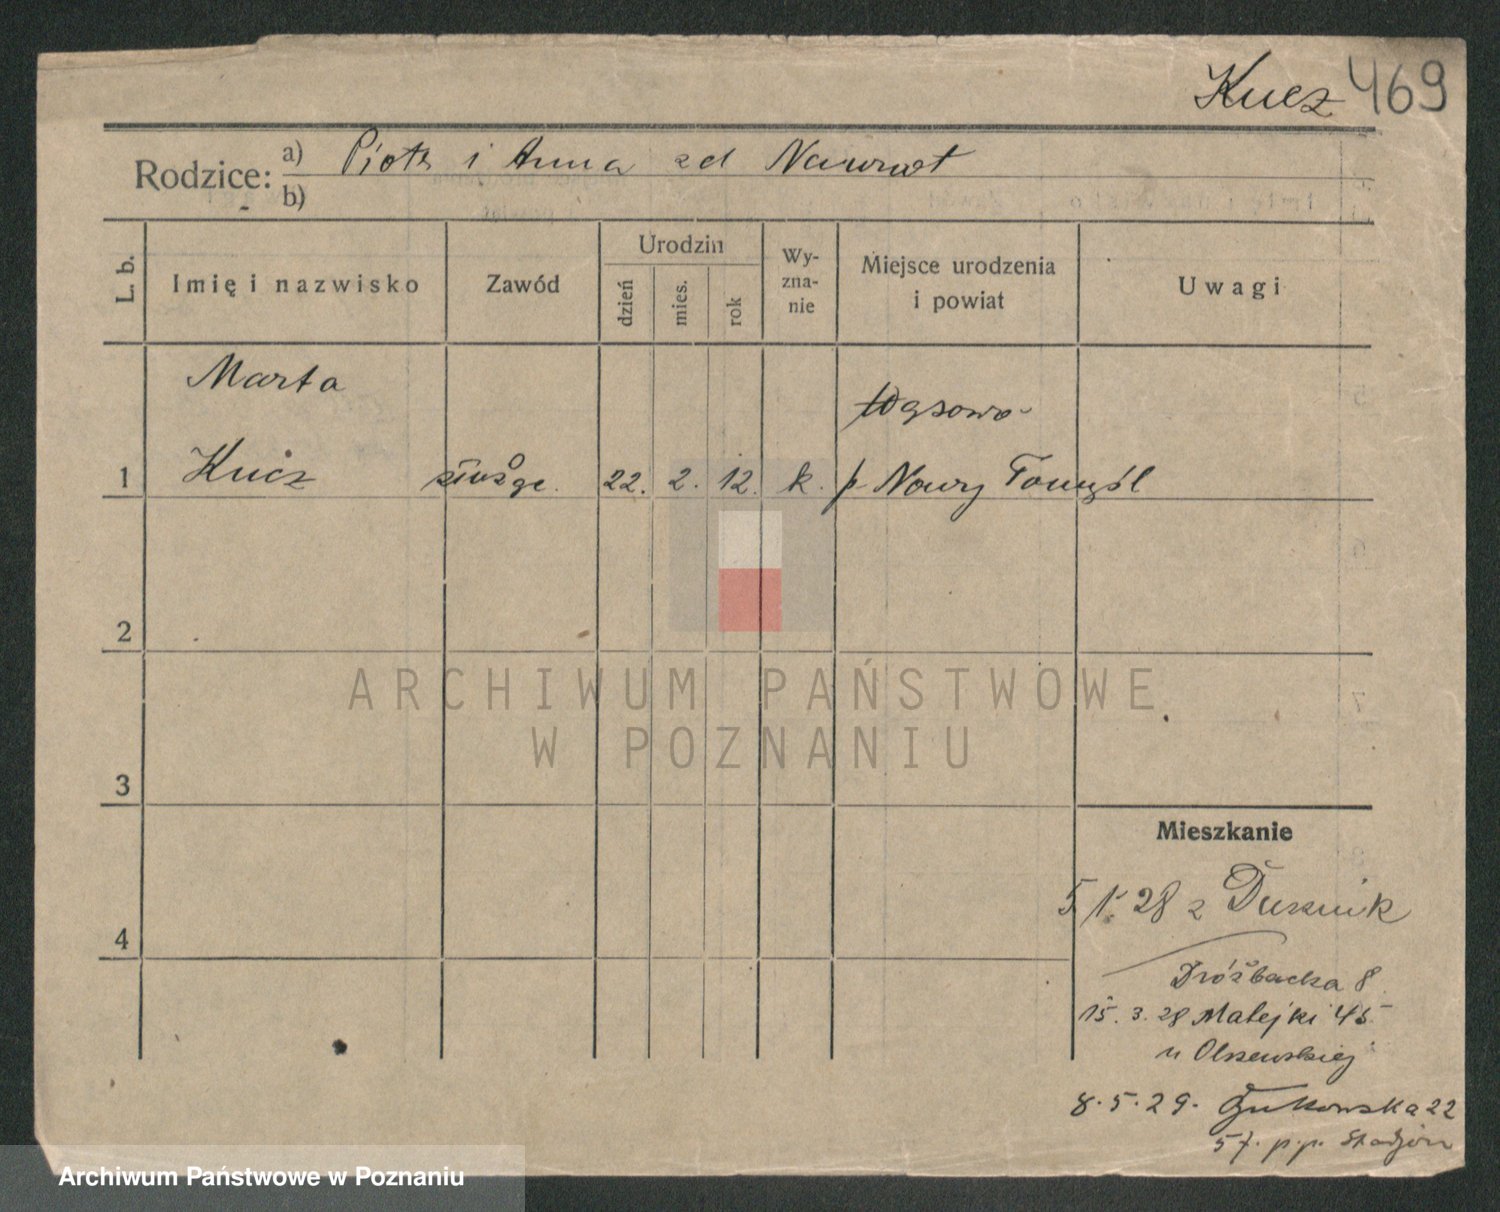 Kucz 469
Rodzice: a) Piotr i Anna zd Nawrot
b)
L. b.
Imię i nazwisko
Zawód
Urodzin
dzień
mies.
rok
Wy-
zna-
nie
Miejsce urodzenia
i powiat
Uwagi
Marta
Wąsowo
1 Kucz służąc. 22. 2. 12. k. p. Nowy Tomyśl
2
3
4
Mieszkanie
5/1. 28 z Dusznik
8
15. 3. 28 Matejki 45
u Olszewskiej
8. 5. 29. 22
57. p.p. Stadjon
ARCHIWUM PAŃSTWOWE
W POZNANIU
Archiwum Państwowe w Poznaniu